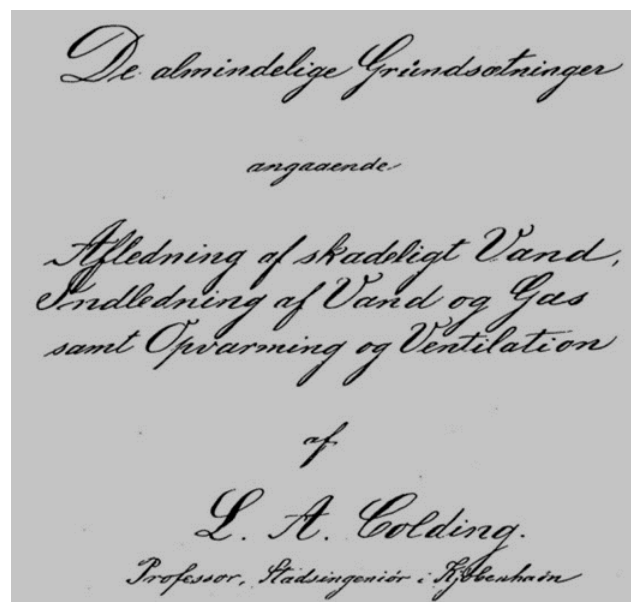 De almindelige Grŭndsætninger
angaaende
Afledning af skadeligt Vand,
Indledning af Vand og Gas
samt Opvarming og Ventilation
af
L. A. Colding.
Professor, Stadsingeniör i Kjöbenhavn